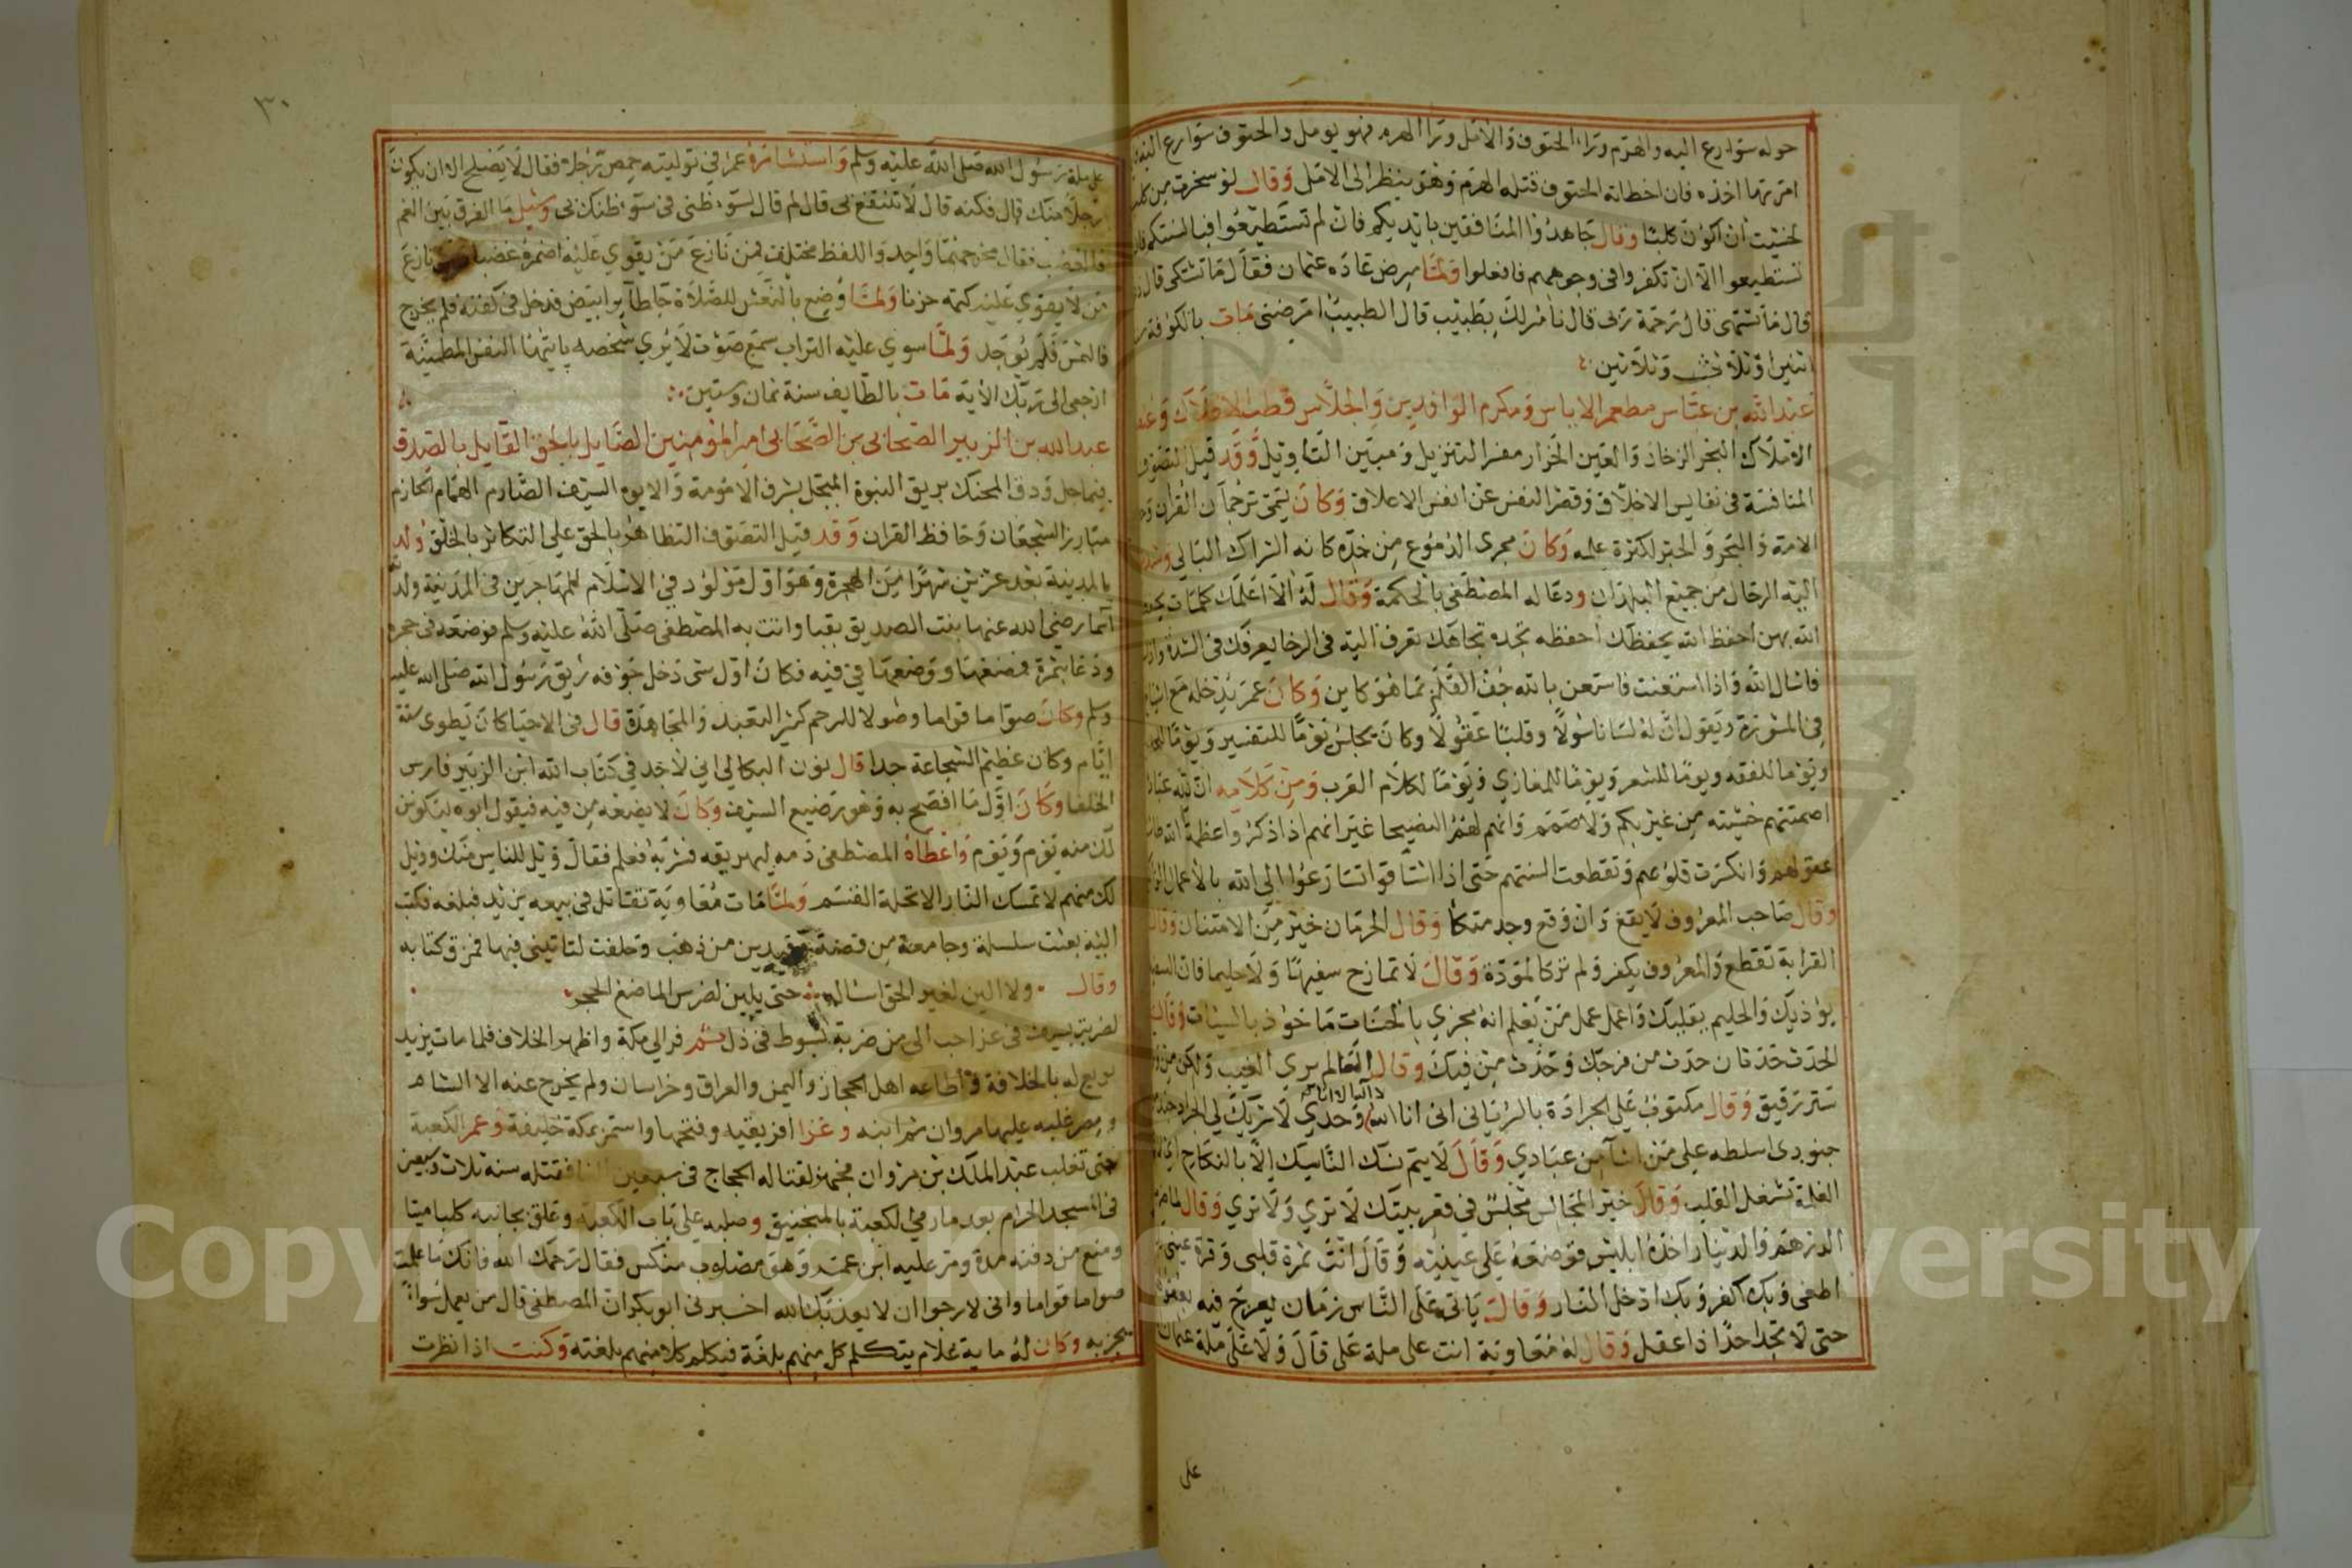 حوله شوارع اليه والهرم وراء الحتوف والامل وراء الهرم فهو يومل والحتوف شوارع اليه
امر بها اخذه فان اخطاته الحتوف قتله الهرم وهو ينظر الى الامل وقال لو سخرت من كلب
لخشيت ان اكون كلبا وقال جاهدوا المنافقين بايديكم فان لم تستطيعوا فبالسنتكم فان
تستطيعوا الا ان تكفروا في وجوههم فافعلوا ولما مرض عاده عثمان فقال ما تشتكى قال
قال ما تشتهى قال رحمة ربى قال نامر لك بطبيب قال الطبيب امرضنى مات بالكوفة
اثنين او ثلاث وثلاثين
عبد الله بن عباس مطعم الاباس ومكرم الوافدين والجلاس قطب الافلاك وعنصر
الاملاك البحر الزخار والعين الخرار مفسر التنزيل ومبين التاويل وقد قيل التصوف
المنافسة في نفايس الاخلاق وقصر النفس عن انفس الاعلاق وكان يسمى ترجمان القران
الامة والبحر والحبر لكثرة علمه وكان مجرى الدموع من خده كانه الشراك البالي
اليه الرحال من جميع البلدان ودعا له المصطفى بالحكمة وقال له الا اعلمك كلمات
الله بهن احفظ الله يحفظك احفظه تجده تجاهك تعرف اليه في الرخا يعرفك في الشدة
فاسال الله واذا استعنت فاستعن بالله جف القلم بما هو كاين وكان عمر يدخله مع اشياخ
في المشورة ويقول ان له لسانا سولا وقلبا عقولا وكان يجلس يوما للتفسير ويوما
ويوما للفقه ويوما للشعر ويوما للمغازي ويوما لكلام العرب ومن كلامه ان لله عبادا
اصمتتهم خشيته من غير بكم ولا صمم وانهم لهم الفصحا غير انهم اذا ذكروا عظمة الله
عقولهم وانكسرت قلوبهم وتقطعت السنتهم حتى اذا اشتاقوا تسارعوا الى الله بالاعمال
وقال صاحب المعروف لا يقع وان وقع وجد متكا وقال الحرمان خير من الامتنان وقال
القرابة تقطع والمعروف يكفر ولم نر كالمودة وقال لا تمازح سفيها ولا حليما فان
يؤذيك والحليم يقليك واعمل عمل من يعلم انه مجزي بالحسنات ماخوذ بالسيئات وقال
الحدث حدثان حدث من فرجك وحدث من فيك وقال العالم يرى الغيب ولكن من
ستر رقيق وقال مكتوب على الجرادة بالسرياني اني انا الله وحدي لا شريك لي الجراد جند من
جنودى اسلطه على من اشا من عبادي وقال لا يتم نسك الناسك الا بالنكاح
الغلمة تشغل القلب وقال خير المجالس مجلس في قعر بيتك لا ترى ولا ترى وقال لما
الدرهم والدينار اخذه ابليس فوضعه على عينيه وقال انت ثمرة قلبى وقرة عيني
اطغى وبك اكفر وبك ادخل النار وقال ياتى على الناس زمان يعرج فيه بعقول
حتى لا تجد احدا ذا عقل وقال له معاوية انت على ملة على قال ولا على ملة عثمان
على
٣٠
على ملة رسول الله صلى الله عليه وسلم واستشاره عمر في توليته حمص رجلا فقال لا يصلح الا ان يكون
رجلا منك قال فكنه قال لا تنتفع بى قال لم قال لسوء ظنى في سوء ظنك بى وسئل ما الفرق بين الغم
والغضب فقال مخرجهما واحد واللفظ مختلف فمن نازع من يقوي عليه اضمره غضبا نازع
من لا يقوي عليه كتمه حزنا ولما وضع بالنعش للصلاة جا طاير ابيض فدخل في كفنه فلم يخرج
فالتمس فلم يوجد ولما سوي عليه التراب سمع صوت لا يري شخصه يايتها النفس المطمئنة
ارجعى الى ربك الاية مات بالطايف سنة ثمان وستين
عبد الله بن الزبير الصحابى بن الصحابي امير المؤمنين الصايل بالحق القايل بالصدق
المحنك بريق النبوة المبجل بشرف الامومة والابوه السيف الصارم الهمام الحازم
مبارز الشجعان وحافظ القران وقد قيل التصوف التظاهر بالحق على التكاثر بالخلق ولد
بالمدينة بعد عشرين شهرا من الهجرة وهو اول مولود في الاسلام للمهاجرين في المدينة ولدته
اسما رضى الله عنها بنت الصديق بقبا واتت به المصطفى صلى الله عليه وسلم فوضعه في حجره
ودعا بتمرة فمضغها ووضعها في فيه فكان اول شى دخل جوفه ريق رسول الله صلى الله عليه
وسلم وكان صواما قواما وصولا للرحم كثير التعبد والمجاهدة قال في الاحيا كان يطوى ستة
ايام وكان عظيم الشجاعة جدا قال نوف البكالي اني لاجد في كتاب الله ابن الزبير فارس
الخلفا وكان اول ما افصح به وهو رضيع السيف وكان لا يضعه من فيه فيقول ابوه ليكونن
لك منه يوم ويوم واعطاه المصطفى دمه ليهريقه فشربه فعلم فقال ويل للناس منك وويل
لك منهم لا تمسك النار الا تحلة القسم ولما مات معاوية تثاقل في بيعه يزيد فبلغه فكتب
اليه بعثت سلسلة وجامعة من فضة وقيدين من ذهب وحلفت لتاتينى فيها فمزق كتابه
وقال ولا الين لغير الحق اساله حتى يلين لضرس الماضغ الحجر
لضربة بسيف فى عز احب الى من ضربة بسوط في ذل ثم فر الى مكة واظهر الخلاف فلما مات يزيد
بويع له بالخلافة واطاعه اهل الحجاز واليمن والعراق وخراسان ولم يخرج عنه الا الشام
ومصر غلبه عليها مروان ثم ابنه وغزا افريقيه وفتحها واستمر بمكة خليفة وعمر الكعبة
حتى تغلب عبد الملك بن مروان فجهز لقتاله الحجاج فى سبعين الفا فقتله سنة ثلاث وسبعين
في المسجد الحرام بعد ما رمى الكعبة بالمنجنيق وصلبه على باب الكعبة وعلق بجانبه كلبا ميتا
ومنع من دفنه مدة ومر عليه ابن عمر وهو مصلوب منكس فقال رحمك الله فانك ما علمت
صواما قواما وانى لارجوا ان لا يعذبك الله اخبرنى ابو بكر ان المصطفى قال من يعمل سوا
يجز به وكان له ماية غلام يتكلم كل منهم بلغة فيكلم كلا منهم بلغته وكنت اذا نظرت
Copyright © King Saud University